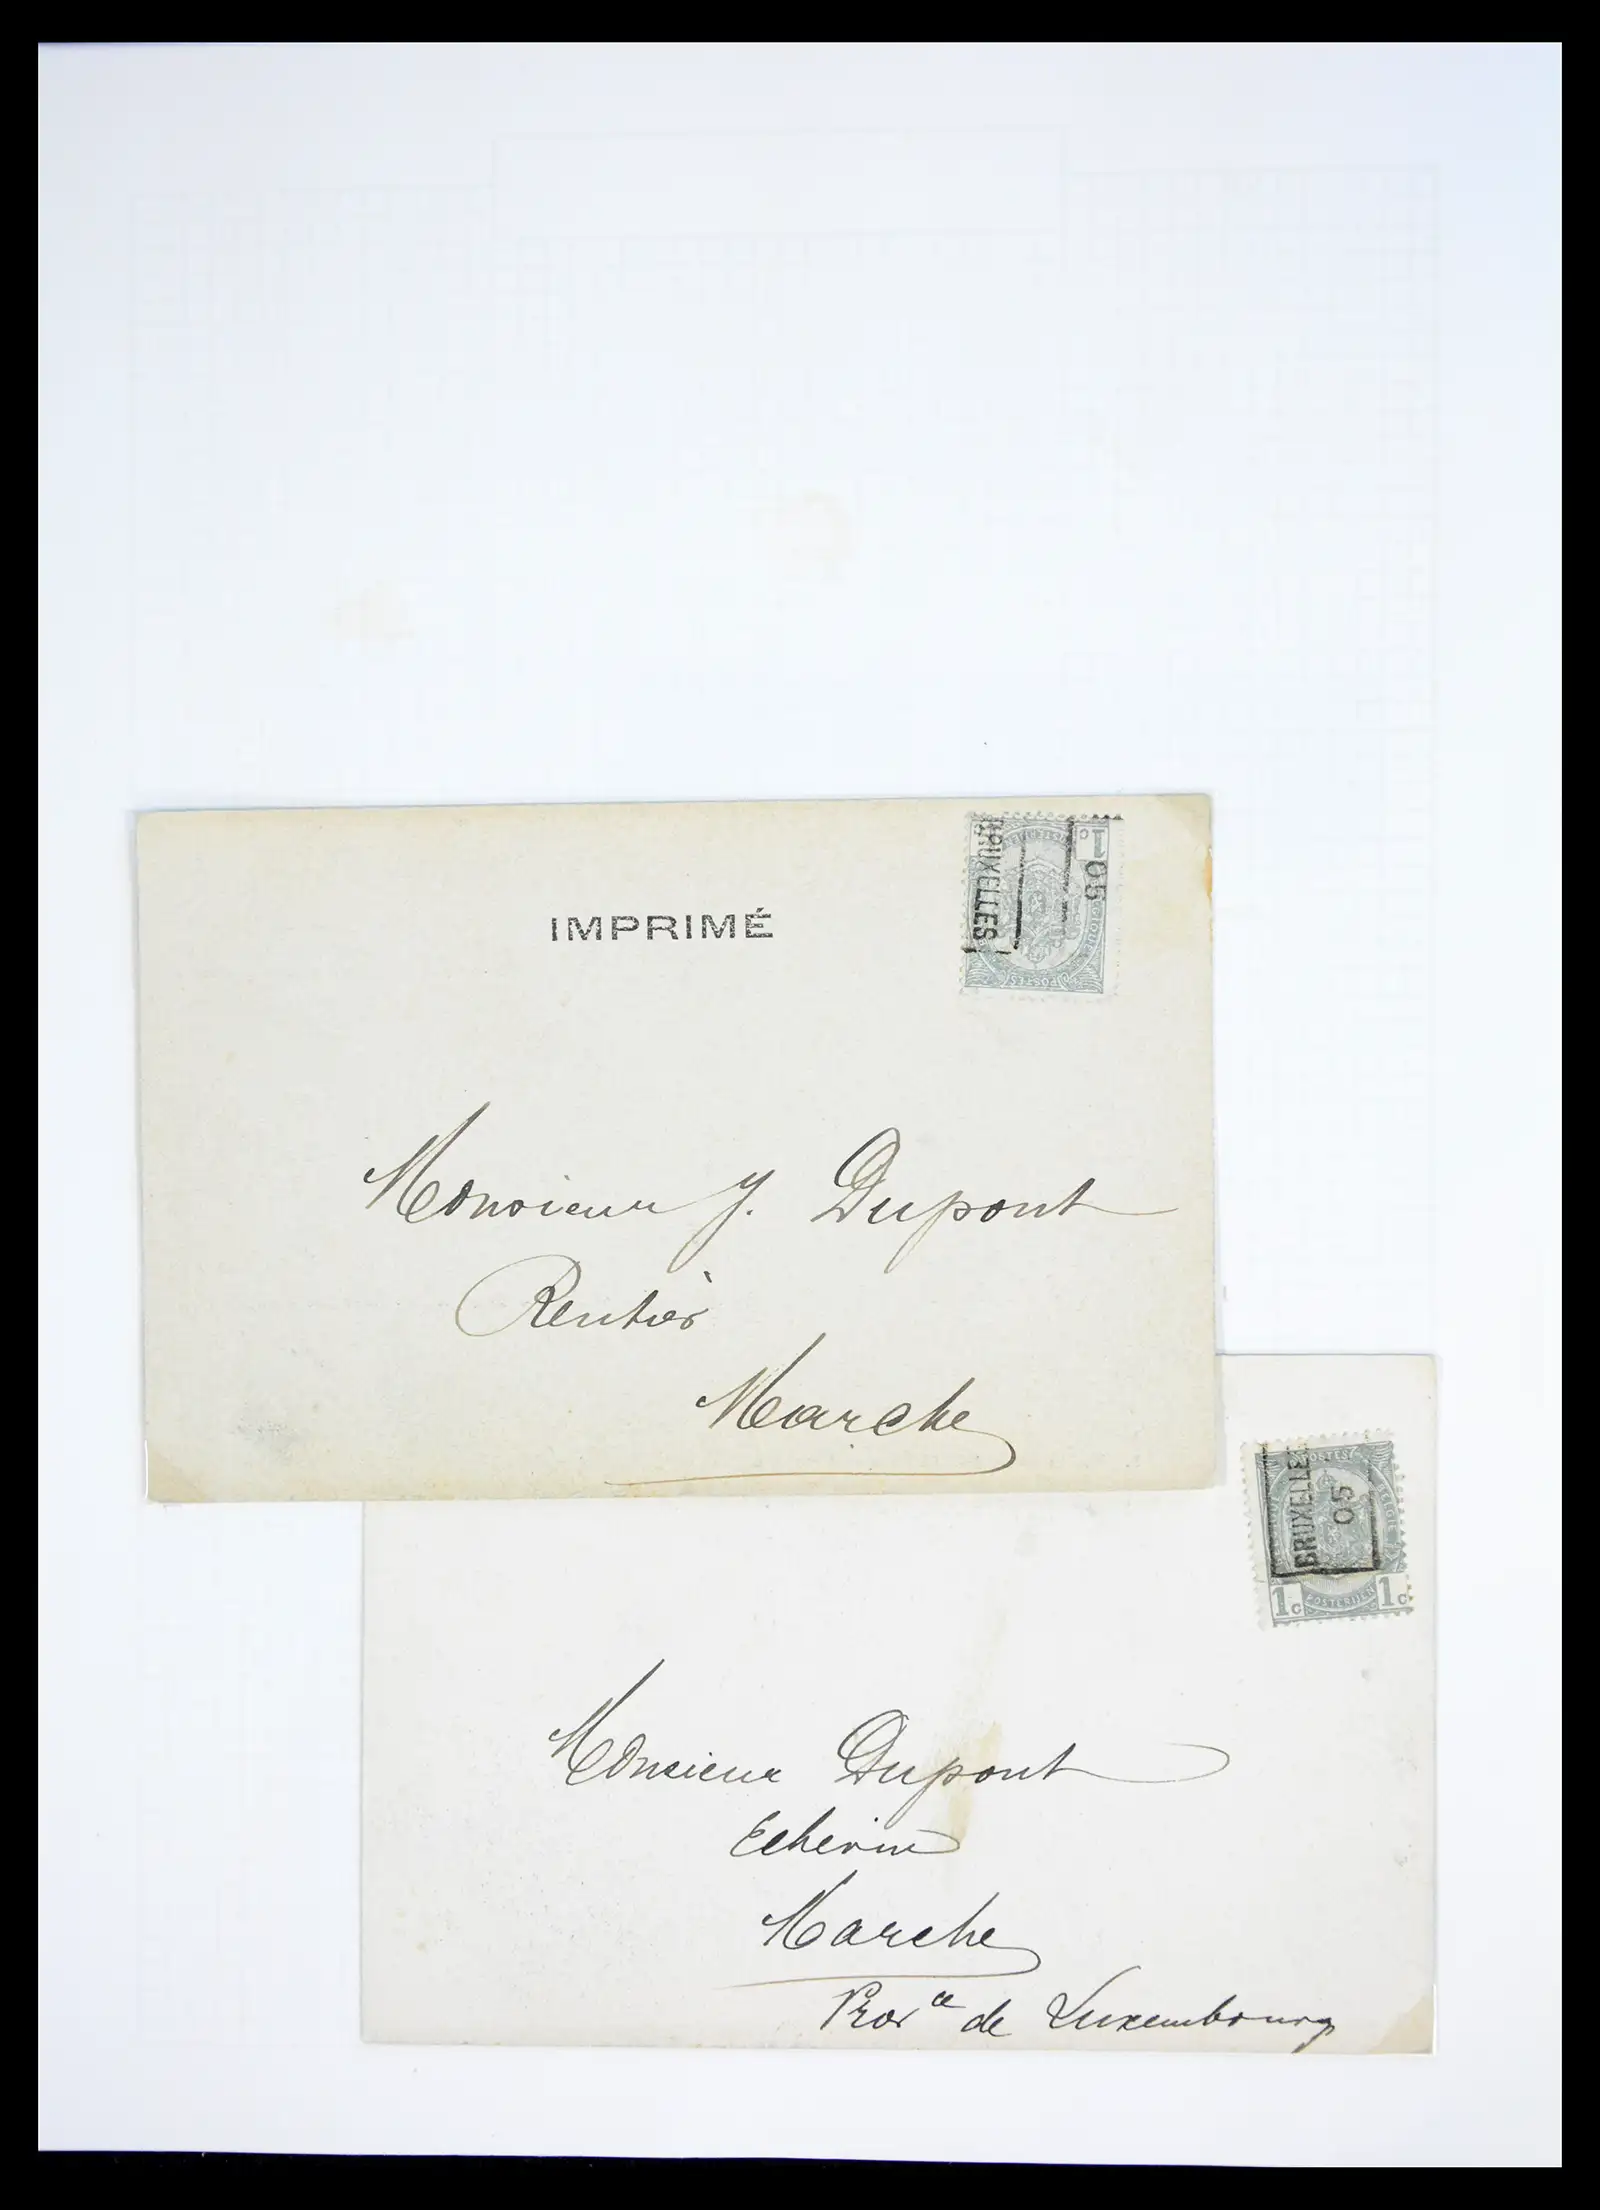 IMPRIMÉ
1c
05
BRUXELLES
POSTES
Monsieur J. Dupont
Rentier
Marche
POSTES
BELGIE
BRUXELLES
05
1c POSTERIJEN 1c
Monsieur Dupont
Echevin
Marche
Prov ce de Luxembourg